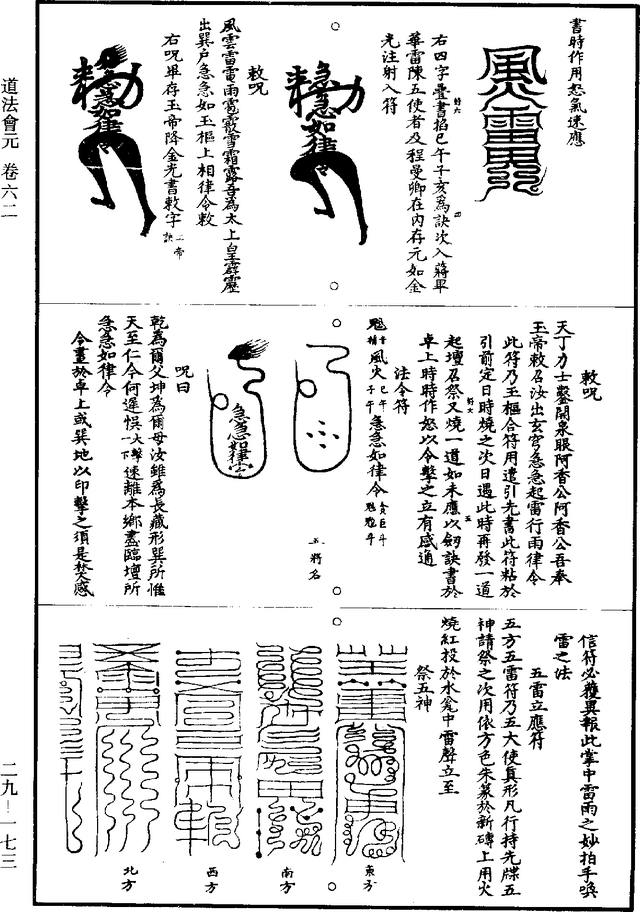 書時作用怒氣速應
右四字疊書掐巳午子亥為訣次入蔣畢
華雷陳五使者及程曼卿在內存元如金
光注射入符
急急如律令
敕呪
風雲雷電雨雹霰雪霜露吾為太上皇霹靂
出巽戶急急如玉樞上相律令敕
右呪畢存玉帝降金光書敕字
急急如律令
敕呪
天丁力士鑿開泉眼阿香公阿香公吾奉
玉帝敕召汝出玄宮急急起雷行雨律令
此符乃玉樞合符用遣引先書此符粘於
引前定日時燒之次日遇此時再發一道
起壇召祭又燒一道如未應以劍訣書於
卓上時時作怒以令擊之立有感通
法令符
風火 急急如律令
五將名
急急如律令
呪曰
乾為爾父坤為爾母汝雖為長藏形巽所惟
天至仁令何遲悞一擊大下速離本鄉盡臨壇所
急急如律令
令畫於卓上或巽地以印擊之須是焚感
信符必獲異報此掌中雷雨之妙拍手喚
雷之法
五雷立應符
五方五雷符乃五大使真形凡行持先牒五
神請祭之次用依方色朱篆於新磚上用火
燒紅投於水瓮中雷聲立至
祭五神
東方
南方
西方
北方
道法會元 卷六二
二九—一七三